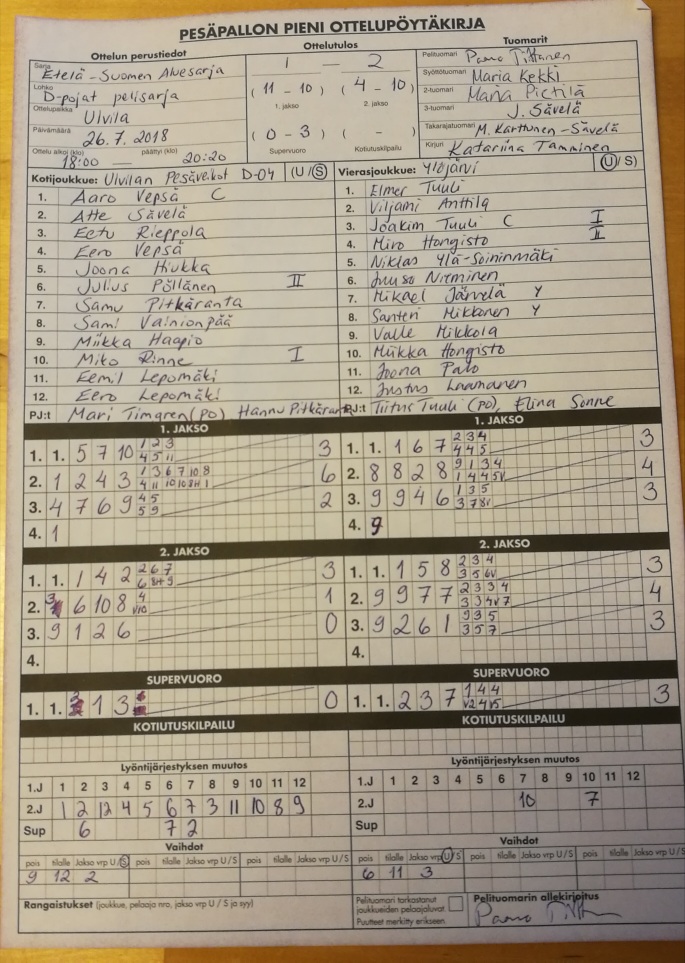 PESÄPALLON PIENI OTTELUPÖYTÄKIRJA
Ottelun perustiedot
Ottelutulos
Tuomarit
Sarja Etelä-Suomen Aluesarja
1 — 2
Pelituomari
Lohko D-pojat pelisarja
(11 - 10) (4 - 10)
1. jakso 2. jakso
Syöttötuomari Maria Kekki
Ottelupaikka Ulvila
2-tuomari Maria Pietilä
3-tuomari J. Sävelä
Päivämäärä 26.7.2018
(0 - 3) ( - )
Supervuoro Kotiutuskilpailu
Takarajatuomari M. Karttunen-Sävelä
Ottelu alkoi (klo) 18:00 — päättyi (klo) 20:20
Kirjuri Katariina Tamminen
Kotijoukkue: Ulvilan Pesäveikot D-04 (U/S)
1. Aaro Vepsä C
2. Atte Sävelä
3. Eetu Rieppola
4. Eero Vepsä
5. Joona Hiukka
6. Julius Pöllänen II
7. Samu Pitkäranta
8. Sami Vainionpää
9. Miikka Haapio
10. Miko Rinne I
11. Eemil Lepomäki
12. Eero Lepomäki
PJ:t Mari Timgren (PO) Hannu Pitkäranta
Vierasjoukkue: Ylöjärvi (U/S)
1. Elmer Tuuli
2. Viljami Anttila
3. Joakim Tuuli C I
4. Miro Hongisto II
5. Niklas Ylä-Soininmäki
6. Juuso Nieminen
7. Mikael Järvelä Y
8. Santeri Mikkonen Y
9. Valle Mikkola
10. Miikka Hongisto
11. Joona Palo
12. Justus Laamanen
PJ:t Tiitus Tuuli (PO), Elina Sonne
1. JAKSO
1. 1. 5 7 10 1 2 3 3
4 5 11
2. 1 2 4 3 1 3 6 7 10 8 6
3. 4 7 6 9 4 5 2
5 9
4. 1
1. JAKSO
1. 1. 1 6 7 2 3 4 3
4 4 5
2. 8 8 2 8 9 1 3 4 4
3. 9 9 4 6 1 3 5 3
4. 9
2. JAKSO
1. 1. 1 4 2 2 6 7 3
2. 6 10 8 4 1
3. 9 1 2 6 0
4.
2. JAKSO
1. 1. 1 5 8 2 3 4 3
2. 9 9 7 7 2 3 3 4 4
3. 9 2 6 1 9 3 5 3
3 5 7
4.
SUPERVUORO
1. 1. 1 3 0
SUPERVUORO
1. 1. 2 3 7 1 4 4 3
KOTIUTUSKILPAILU
KOTIUTUSKILPAILU
Lyöntijärjestyksen muutos
1.J 1 2 3 4 5 6 7 8 9 10 11 12
2.J 1 2 12 4 5 6 7 3 11 10 8 9
Sup 6 7 2
Lyöntijärjestyksen muutos
1.J 1 2 3 4 5 6 7 8 9 10 11 12
2.J 10 7
Sup
Vaihdot
pois tilalle Jakso vrp U/S pois tilalle Jakso vrp U/S pois tilalle Jakso vrp U/S
9 12 2
Vaihdot
pois tilalle Jakso vrp U/S pois tilalle Jakso vrp U/S pois tilalle Jakso vrp U/S
6 11 3
Rangaistukset (joukkue, pelaaja nro, jakso vrp U / S ja syy)
Pelituomari tarkastanut joukkueiden pelaajaluvat.
Puutteet merkitty erikseen.
Pelituomarin allekirjoitus